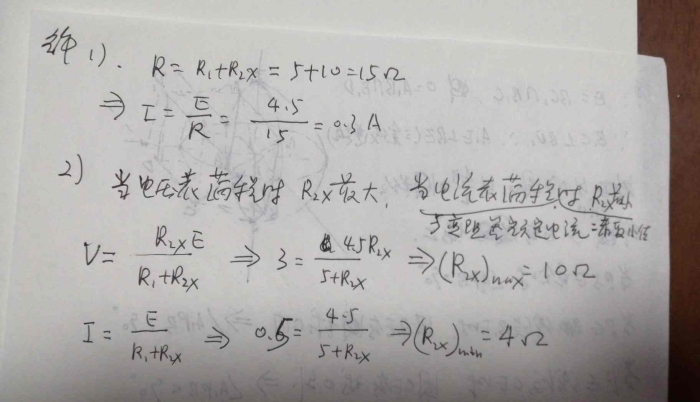 解 1).
R = R₁+R₂ₓ = 5+10 = 15Ω
⇒ I = E/R = 4.5/15 = 0.3A
2) 当电压表满程时 R₂ₓ最大, 当电流表满程时 R₂ₓ最小
变阻器额定电流=
V = R₂ₓE/(R₁+R₂ₓ) ⇒ 3 = 4.5R₂ₓ/(5+R₂ₓ) ⇒ (R₂ₓ)max = 10Ω
I = E/(R₁+R₂ₓ) ⇒ 0.5 = 4.5/(5+R₂ₓ) ⇒ (R₂ₓ)min = 4Ω